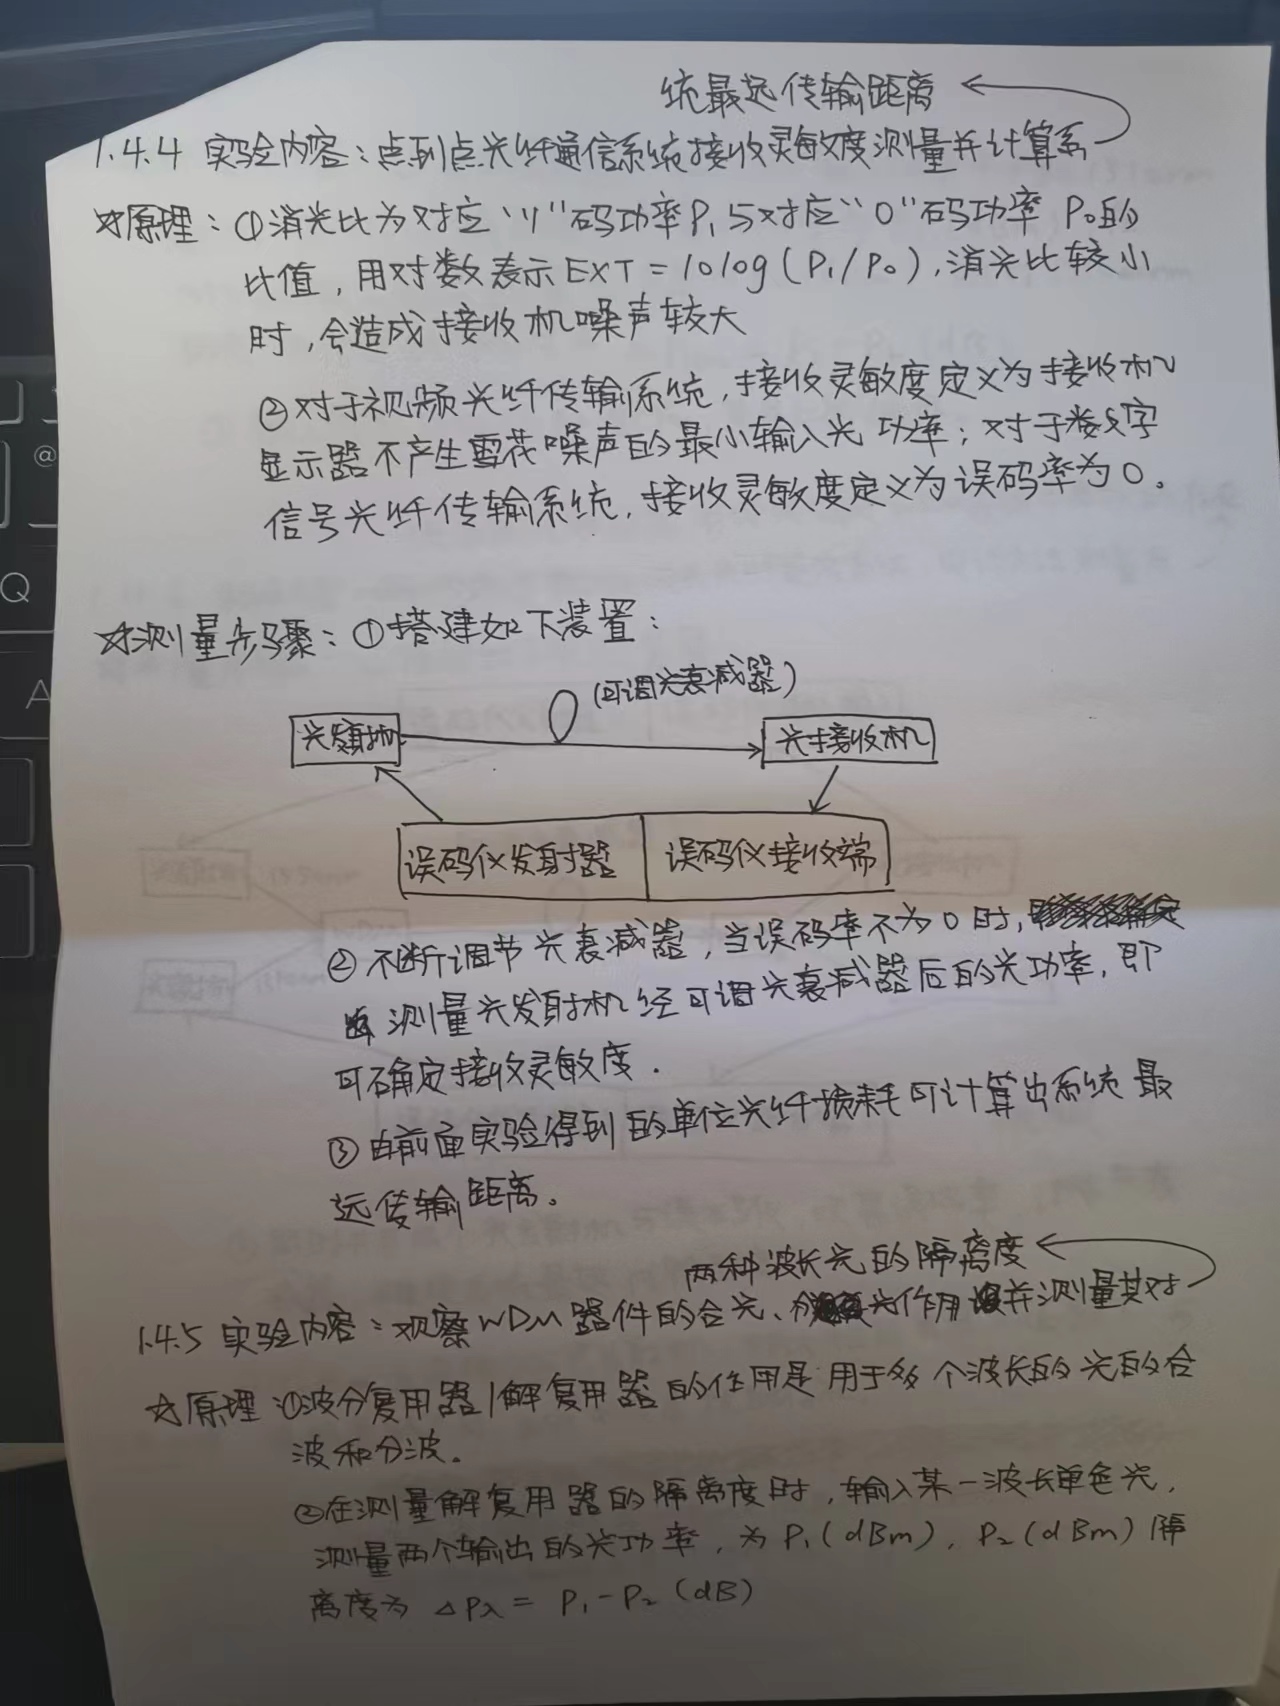 统最远传输距离
1.4.4 实验内容：点到点光纤通信系统接收灵敏度测量并计算系
☆原理：①消光比为对应“1”码功率P₁与对应“0”码功率 P₀的
比值，用对数表示EXT=10log(P₁/P₀),消光比较小
时,会造成接收机噪声较大
②对于视频光纤传输系统,接收灵敏度定义为接收机
显示器不产生雪花噪声的最小输入光功率；对于数字
信号光纤传输系统,接收灵敏度定义为误码率为0。
☆测量步骤：①搭建如下装置：
(可调光衰减器)
光发射机
光接收机
误码仪发射器
误码仪接收端
②不断调节光衰减器,当误码率不为0时,
测量光发射机经可调光衰减器后的光功率,即
可确定接收灵敏度.
③由前面实验得到的单位光纤损耗可计算出系统最
远传输距离。
两种波长光的隔离度
1.4.5 实验内容：观察WDM器件的合光、分光作用并测量其对
☆原理 ①波分复用器/解复用器的作用是用于多个波长的光的合
波和分波。
②在测量解复用器的隔离度时,输入某一波长单色光,
测量两个输出的光功率,为P₁(dBm),P₂(dBm)隔
离度为 ΔPλ = P₁-P₂(dB)
@
Q
A